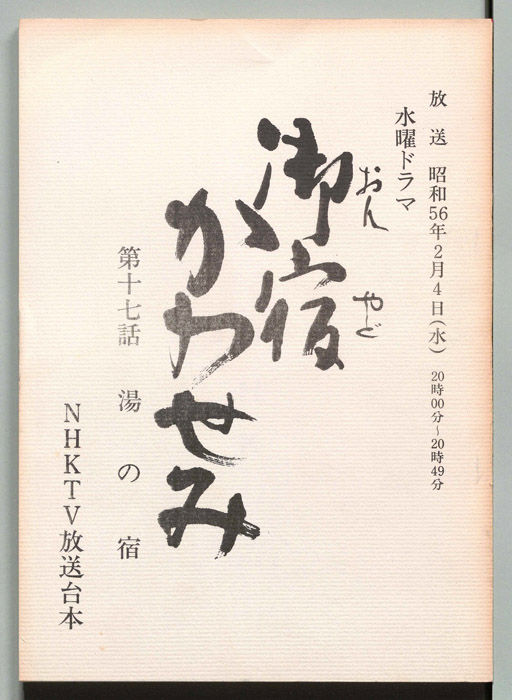 放送 昭和56年2月4日(水) 20時00分~20時49分
水曜ドラマ
おん やど
御宿
かわせみ
第十七話 湯の宿
NHKTV放送台本